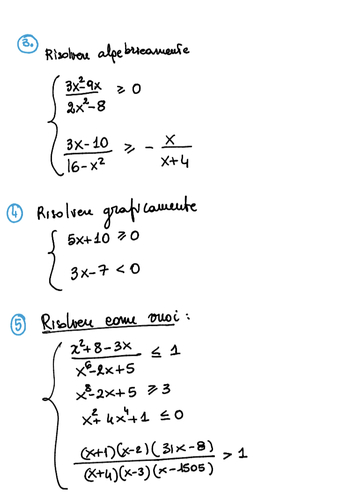 3. Risolvere algebricamente
3x²-9x / 2x²-8 ≥ 0
3x-10 / 16-x² ≥ - x / x+4
4 Risolvere graficamente
5x+10 ≥ 0
3x-7 < 0
5 Risolvere come vuoi:
x²+8-3x / x⁶-2x+5 ≤ 1
x⁸-2x+5 ≥ 3
x²+4x⁴+1 ≤ 0
(x+1)(x-2)(31x-8) / (x+4)(x-3)(x-1505) > 1